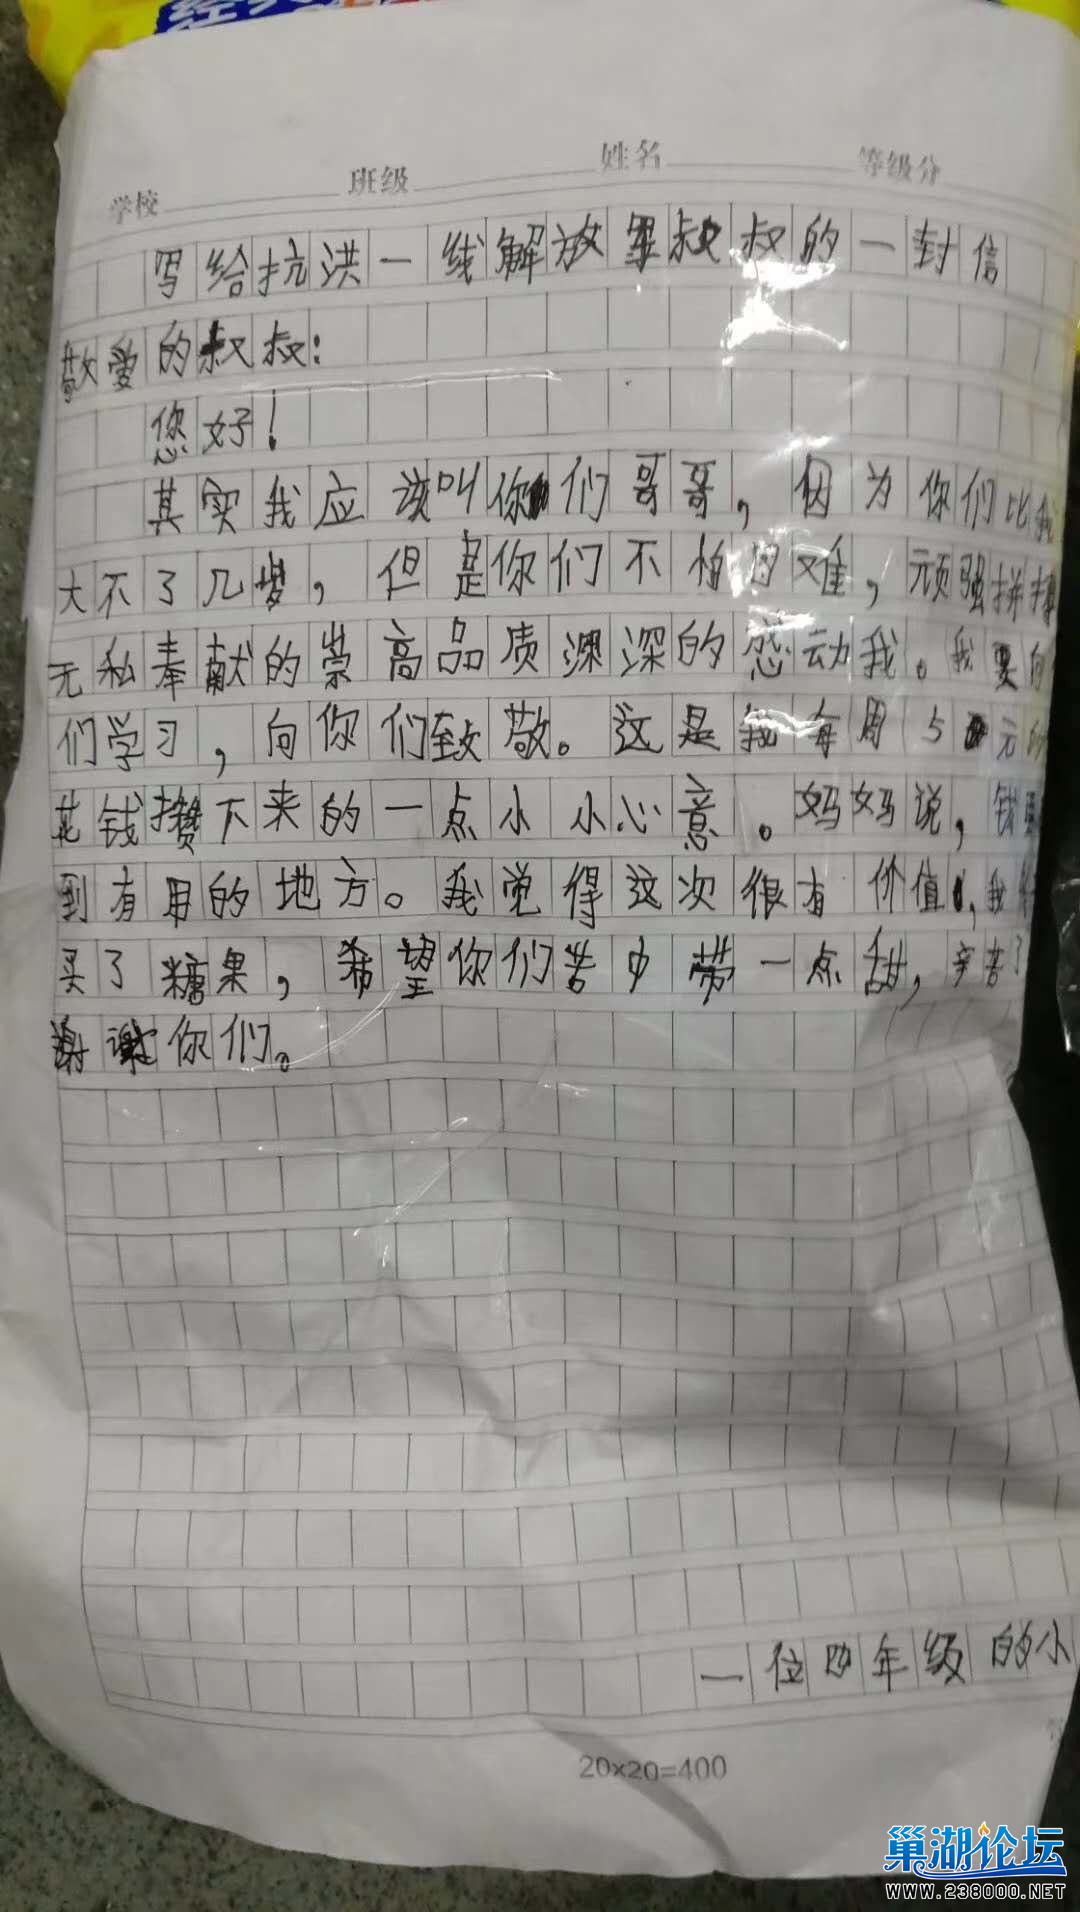 经
学校 班级 姓名 等级分
写给抗洪一线解放军叔叔的一封信
敬爱的叔叔:
您好!
其实我应该叫你们哥哥,因为你们比我
大不了几岁,但是你们不怕困难,顽强拼搏
无私奉献的崇高品质深深的感动我。我要向
们学习,向你们致敬。这是我每周5元的
花钱攒下来的一点小小心意。妈妈说,钱要
到有用的地方。我觉得这次很有价值,我
买了糖果,希望你们苦中带一点甜,辛苦了
谢谢你们。
一位四年级的小
20×20=400
巢湖论坛
www.238000.NET